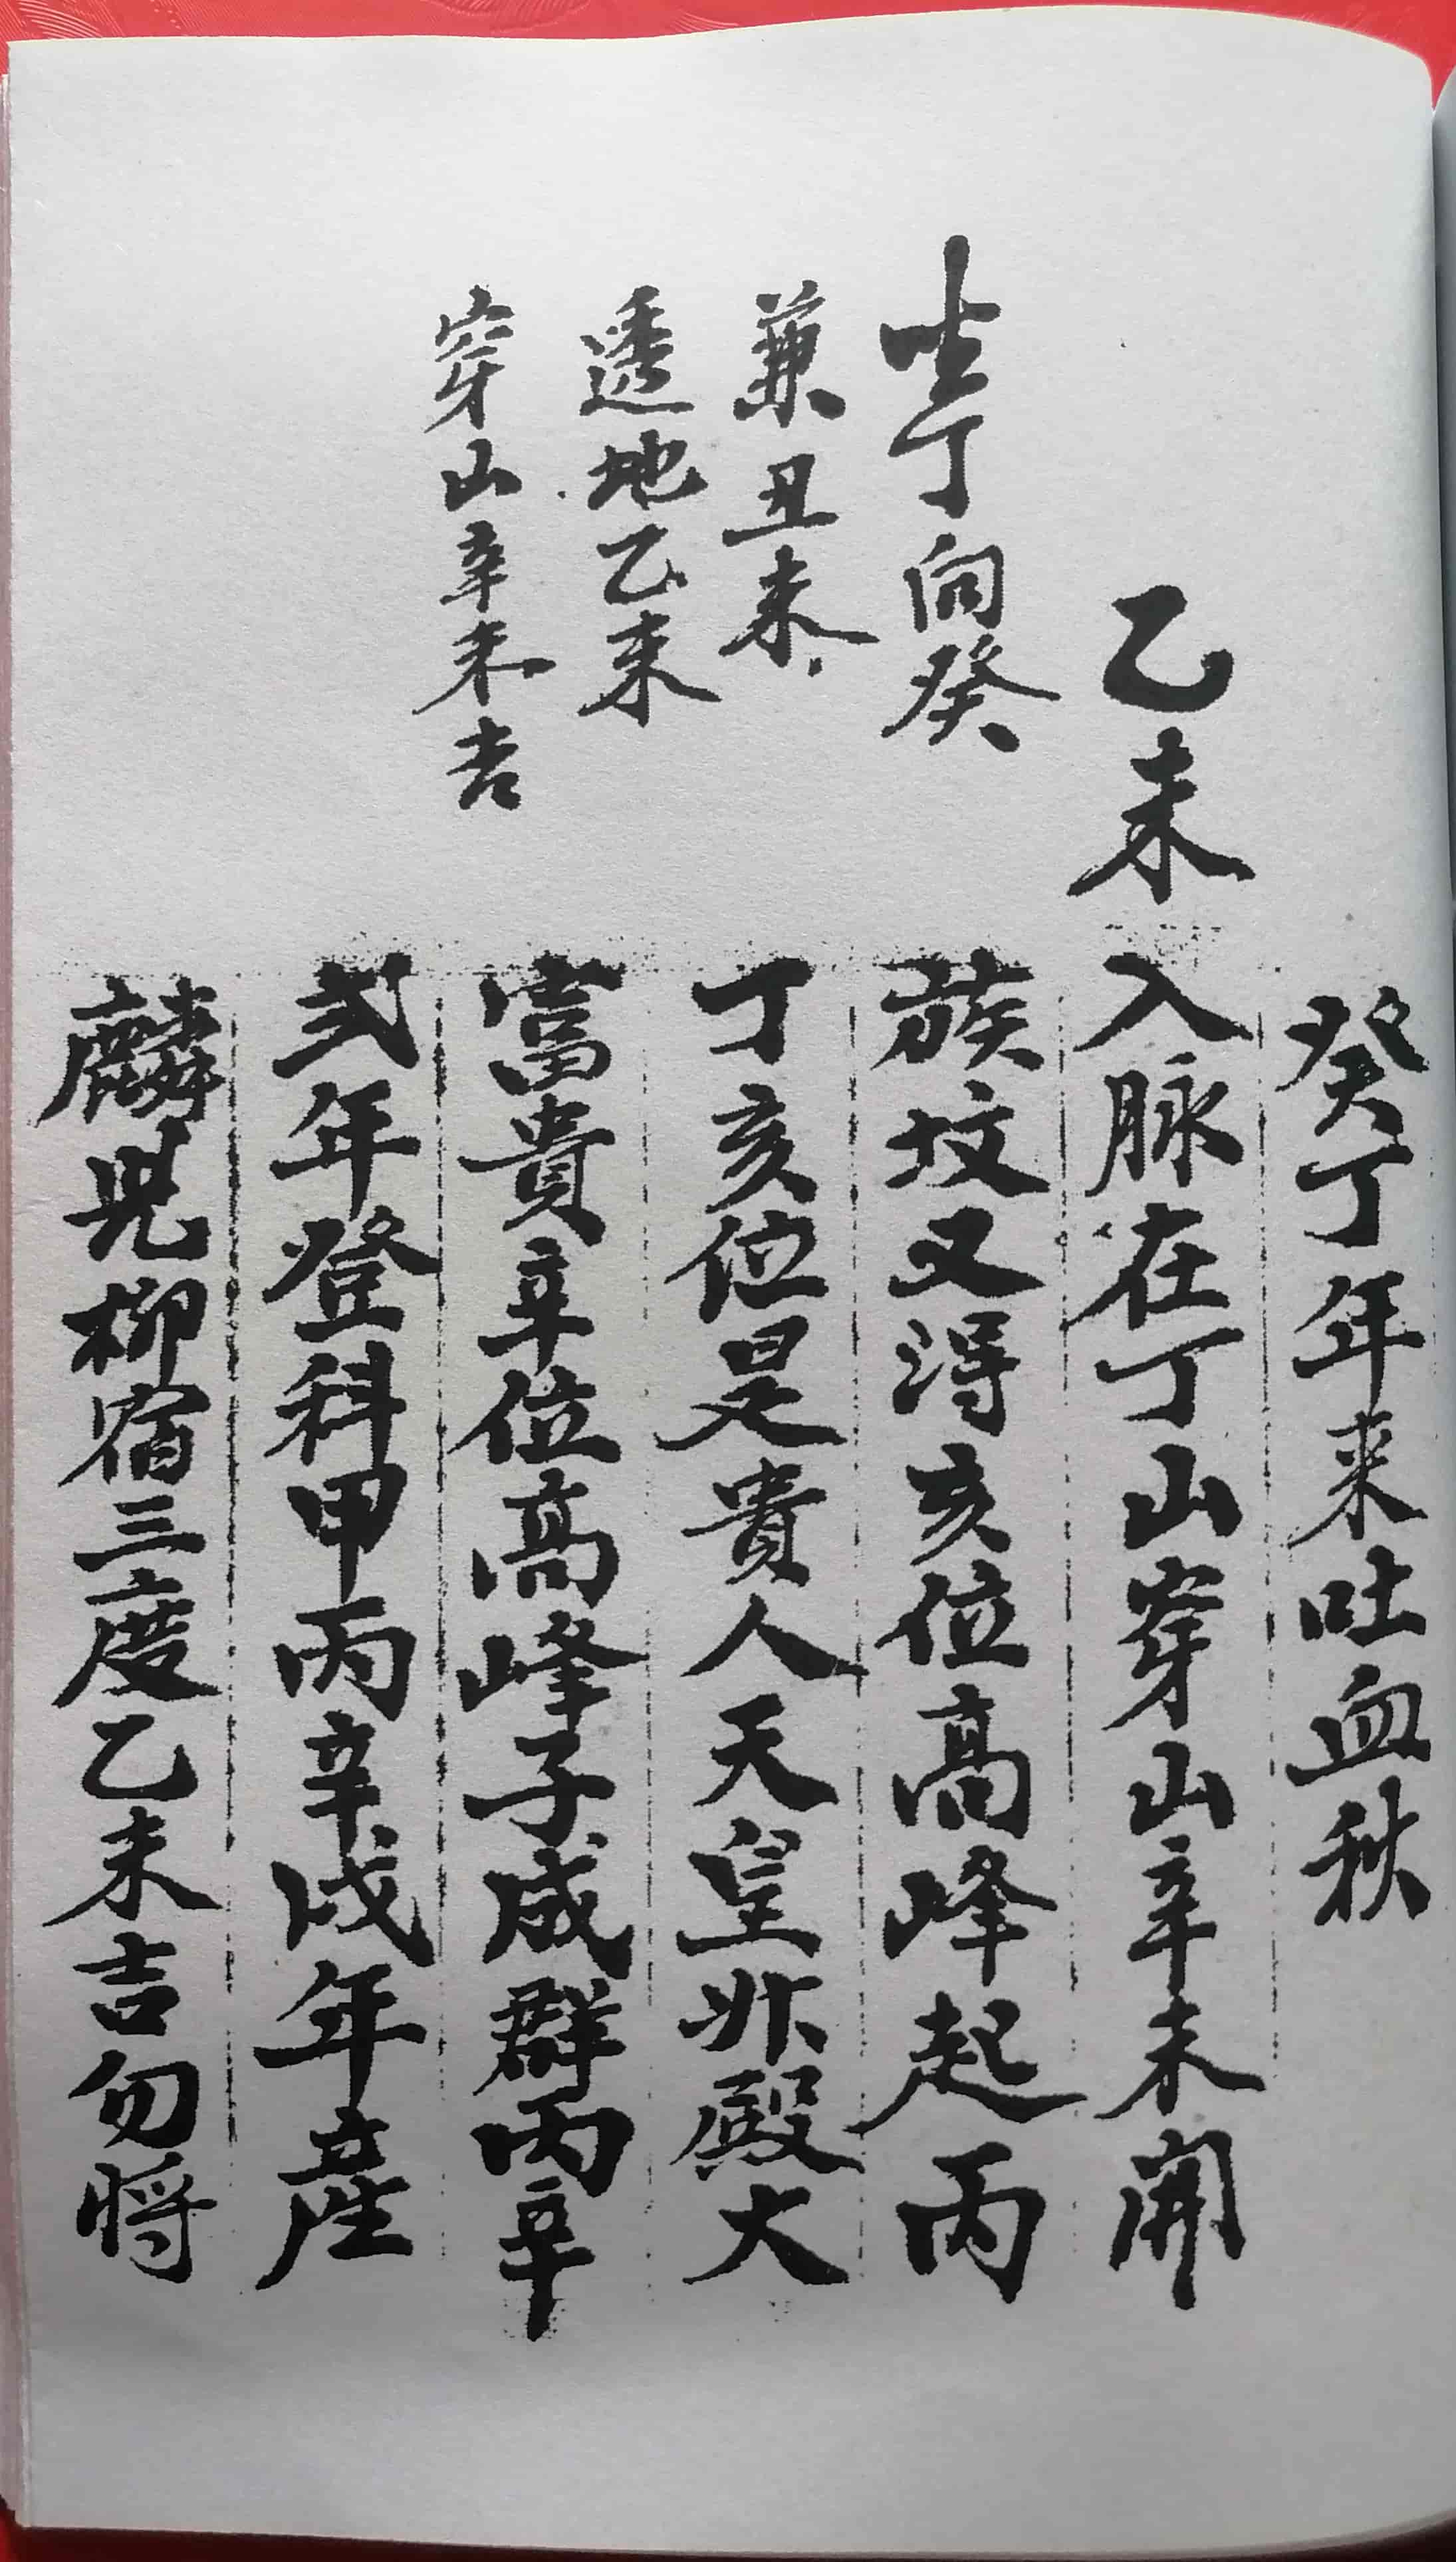 癸丁年来吐血秋
乙未
坐丁向癸
兼丑未
透地乙未
穿山辛未吉
入脉在丁山穿山辛未開
族坟又得亥位高峰起丙
丁亥位是貴人天皇殿大
富貴辛位高峰子成群丙辛
弍年登科甲丙辛戌年產
麟児柳宿三度乙未吉勿將